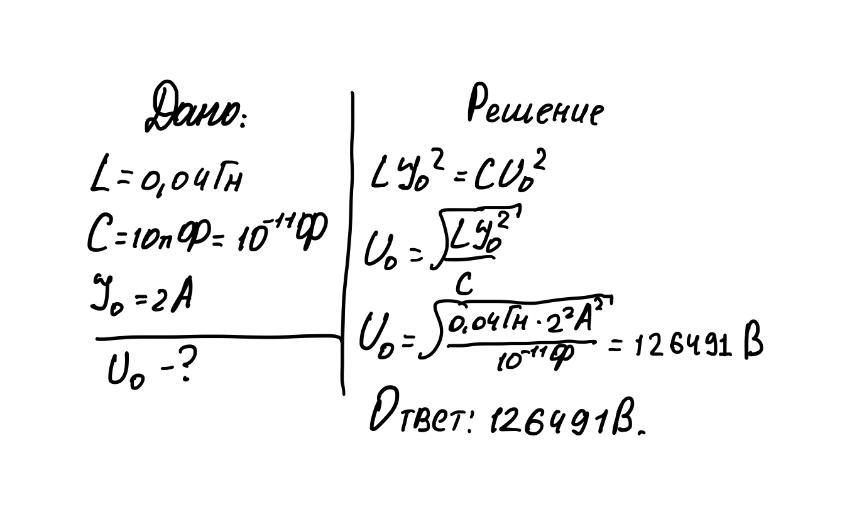 Дано:
L = 0,04 Гн
C = 10пФ = 10⁻¹¹Ф
J₀ = 2 А
U₀ - ?
Решение
L J₀² = C U₀²
U₀ = √(L J₀² / C)
U₀ = √(0,04 Гн · 2² А² / 10⁻¹¹Ф) = 126491 В
Ответ: 126491 В.